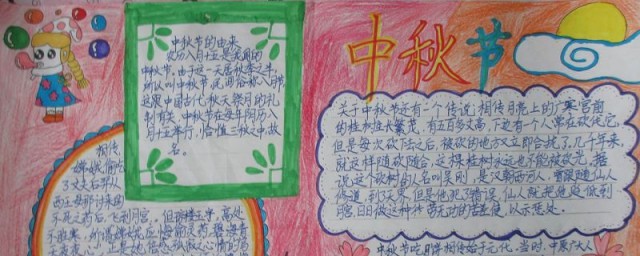 中秋节的由来
农历八月十五是我国的
中秋节。由于这一天居秋季之半
所以叫中秋节,
我国古代,
制有关。中秋节在每年阴历八
月十五举行,恰值三秋之中,故
名。
相传
嫦娥偷吃
了丈夫后羿从
西王母那讨来的
不死之药后,飞到月宫。但琼楼玉宇,高处
不胜寒。
中秋节
关于中秋节还有一个传说:相传月亮上的广寒宫前
的桂树生长繁茂,有五百多丈高,下边有一个人常在砍伐它,
但是每次砍下去之后,被砍的地方又立即合拢了。几千年来,
就这样随砍随合,这棵桂树永远也不能被砍光。据
说这个砍树的人名叫吴刚,是汉朝西河人,曾跟随仙人
修道,到了天界,但是他犯了错误,仙人就把他贬谪到
月宫,日日做这种徒劳无功的苦差使,以示惩处。
中秋节吃月饼相传始于元代。当时,中原广大人